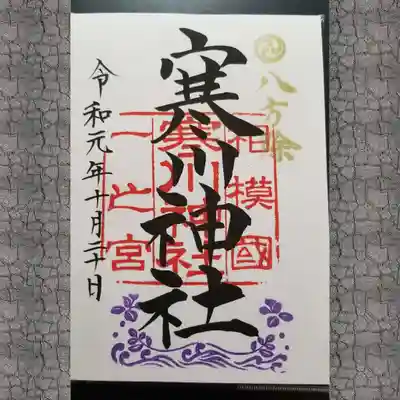 八方除
寒川神社
相模國
寒川神社
一之宮
令和元年十月二十日